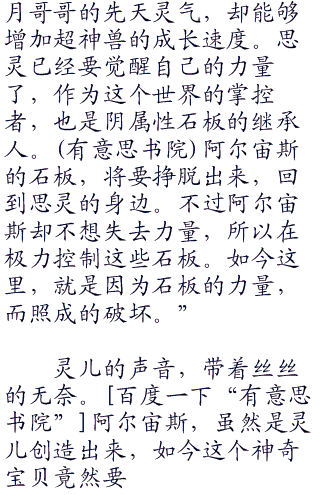 月哥哥的先天灵气，却能够
增加超神兽的成长速度。思
灵已经要觉醒自己的力量
了，作为这个世界的掌控
者，也是阴属性石板的继承
人。(有意思书院)阿尔宙斯
的石板，将要挣脱出来，回
到思灵的身边。不过阿尔宙
斯却不想失去力量，所以在
极力控制这些石板。如今这
里，就是因为石板的力量，
而照成的破坏。”
灵儿的声音，带着丝丝
的无奈。[百度一下“有意思
书院”]阿尔宙斯，虽然是灵
儿创造出来，如今这个神奇
宝贝竟然要